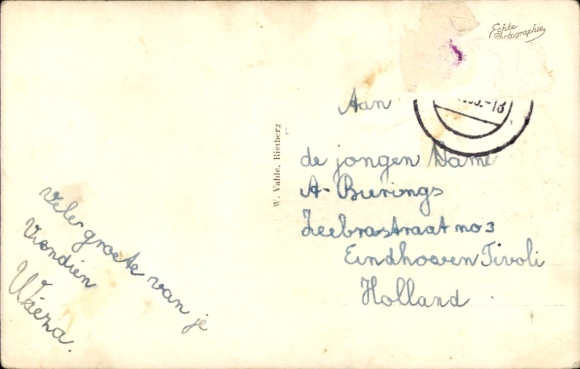 Echte
Photographie
Aan
de jongen Dame
A. Bierings
Zeebrastraat no 3
Eindhoven Tivoli
Holland
W. Vahle, Rietberg
Vele groete van je
Viendien